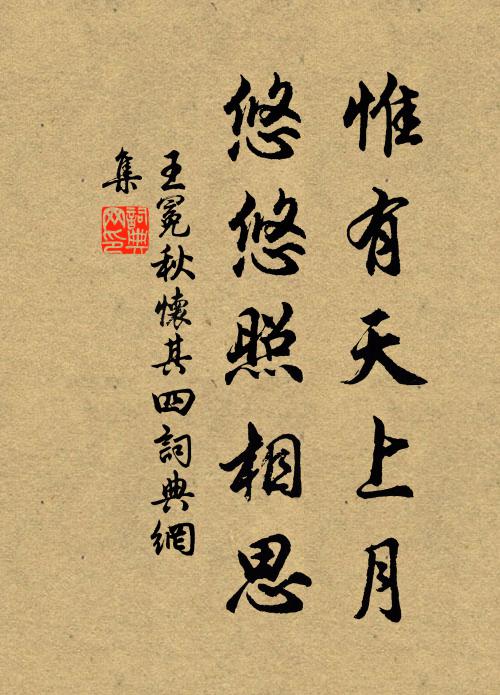 惟有天上月
悠悠照相思
王冕秋懷其四詞典網
集
詞典
网印